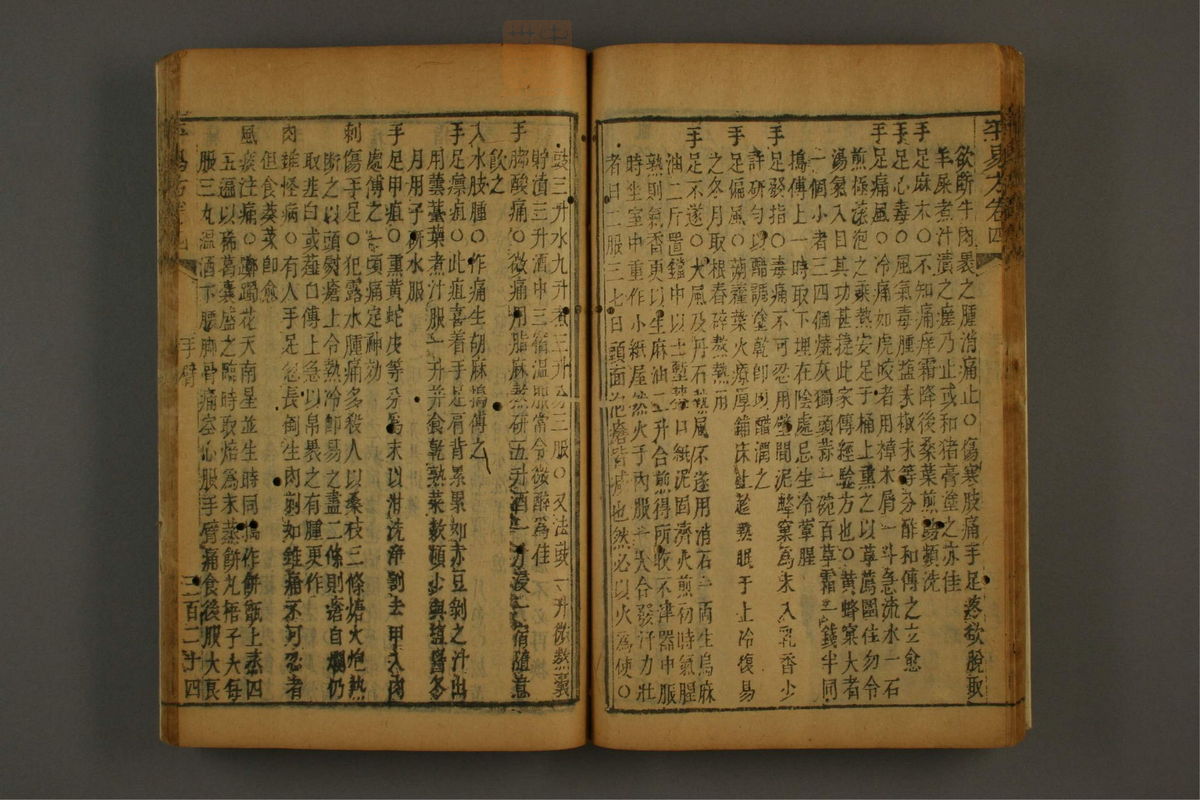 平易方卷四
欲斷牛肉裹之腫消痛止〇傷寒肢痛手足落欲脫取
羊屎煮汁漬之瘥乃止或和猪膏塗之亦佳
手足麻木〇不知痛痒霜降後桑葉煎湯頻洗
手足心毒〇風氣毒腫鹽末椒末等分酢和傅之立愈
手足痛風〇冷痛如虎咬者用樟木屑一斗急流水一石
煎極滚泡之乘熱安足于桶上熏之以草薦圍住勿令
湯氣入目其功甚捷此家傳經驗方也〇黃蜂窠大者
一個小者三四個燒灰獨頭蒜一碗百草霜一錢半同
搗傅上一時取下埋在陰處忌生冷葷腥
手足發指〇毒痛不可忍用壁間泥蜂窠為末入乳香少
許研勻以醋調塗乾即以醋潤之
手足偏風〇蒴藋葉火燎厚鋪床上趁熱眠于上冷復易
之冬月取根舂碎熬熱用
手足不遂〇大風及丹石熱風不遂用消石一兩生烏麻
油二斤置鐺中以土墼蓋口紙泥固濟火煎初時氣腥
熟則氣香更以生麻油二升合煎得所收不津器中服
時坐室中重作小紙屋然火于內服一大合發汗力壯
者日二服三七日頭面疱瘡皆减也然必以火為使〇
豉三升水九升煮三升分三服〇又法豉一升微熬囊
貯漬三升酒中三宿溫服常令微醉為佳
手脚酸痛〇微痛用脂麻熬研五升酒一斗浸一宿隨意
飲之
入水肢腫〇作痛生胡麻搗傅之
手足瘭疽〇此疽喜着手足肩背累累如赤豆剝之汁出
用蕓薹葉煮汁服一升并食乾熟菜數頓少與鹽醬冬
月用子研水服
手足甲疽〇熏黃蛇皮等分為末以泔洗淨割去甲入肉
處傅之一頃痛定神効
刺傷手足〇犯露水腫痛多殺人以桑枝三條煻火炮熱
斷之以頭熨瘡上令熱冷即易之盡二條則瘡自爛仍
取韭白或薤白傅上急以帛裹之有腫更作
肉錐怪病〇有人手足忽長倒生肉刺如錐痛不可忍者
但食葵菜即愈
風痰注痛〇躑躅花天南星並生時同搗作餅甑上蒸四
五遍以稀葛囊盛之臨時取焙為末蒸餅丸梧子大每
服三丸溫酒下腰脚骨痛空心服手臂痛食後服大良
手臂
三百二十四